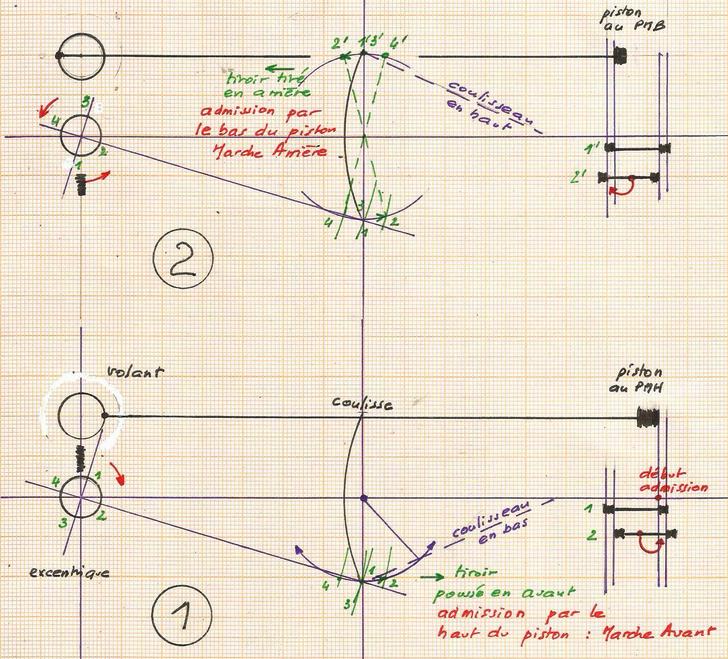 piston
au PMB
2' 1' 3' 4'
tiroir tiré
en arrière
admission par
le bas du piston
Marche Arrière
coulisseau
en haut
3
4
2
1
1'
2'
3
4 1 2
2
volant
coulisse
piston
au PMH
4 1
3 2
excentrique
coulisseau
en bas
début
admission
1
2
4 1 2
3
tiroir
poussé en avant
admission par le
haut du piston : Marche Avant
1